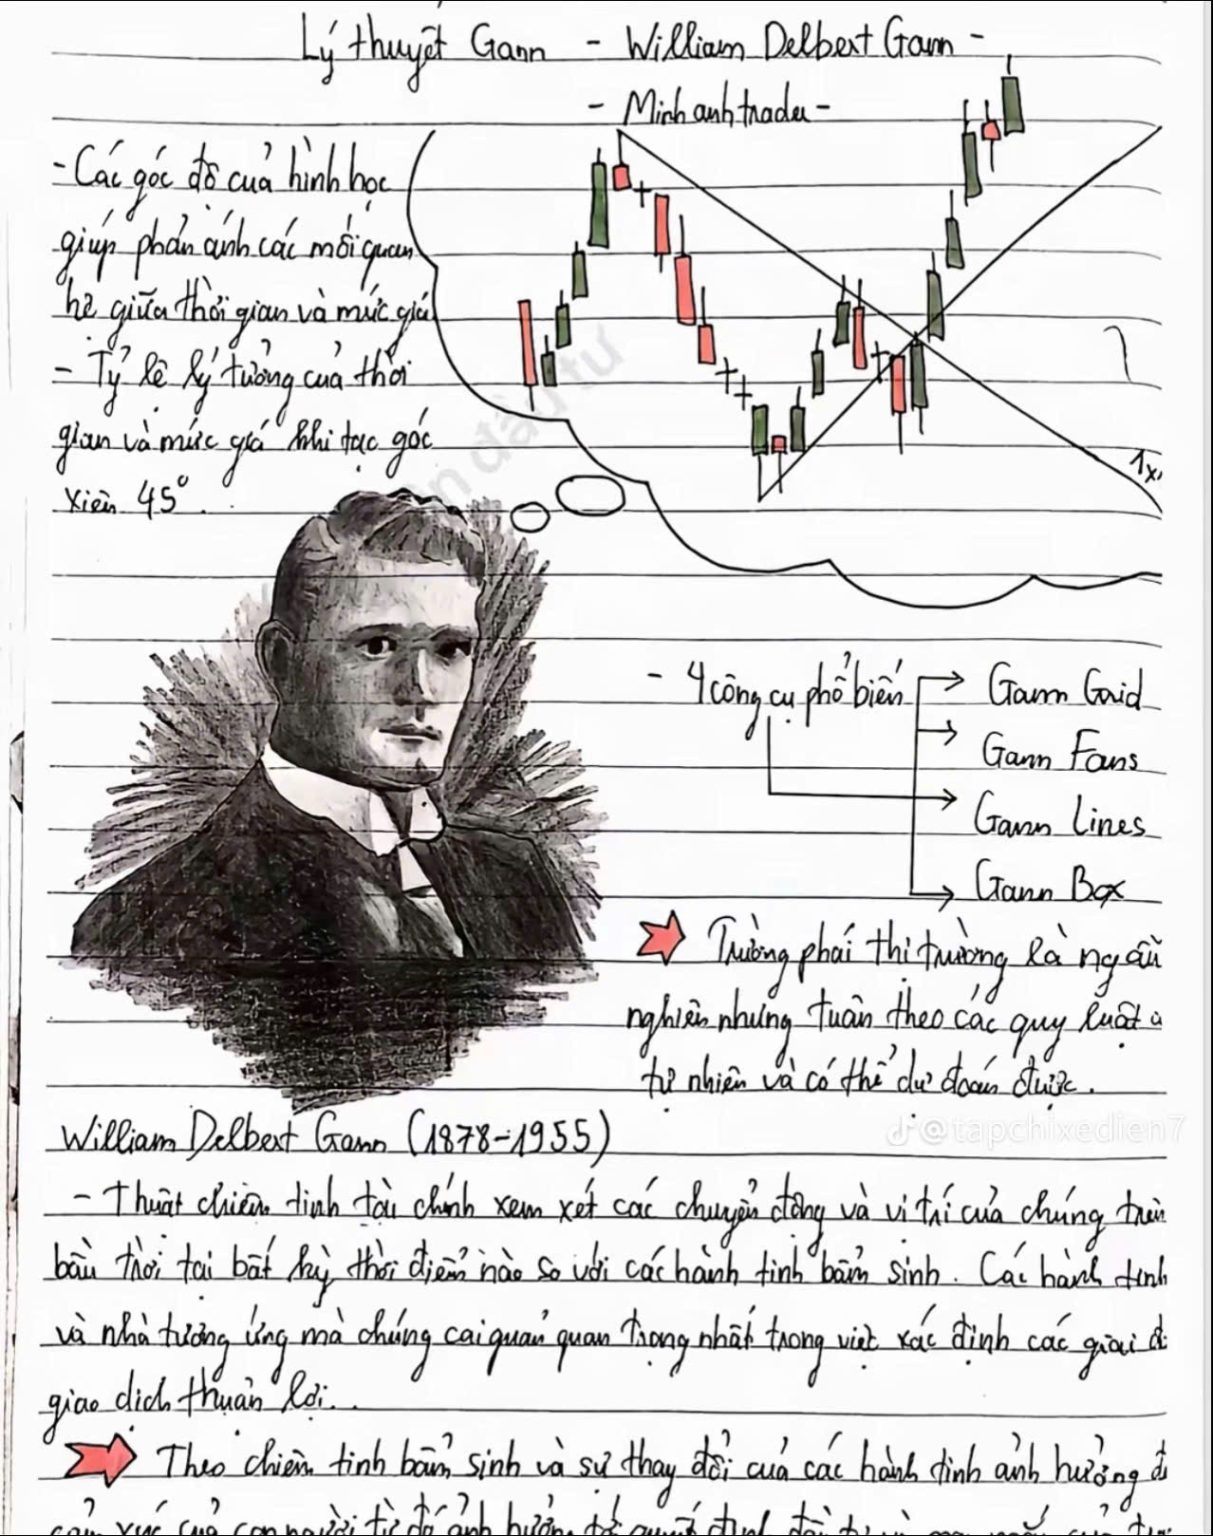 Lý thuyết Gann - William Delbert Gann -
- Minh anh trader -
- Các góc độ của hình học
giúp phản ánh các mối quan
hệ giữa thời gian và mức giá
- Tỷ lệ lý tưởng của thời
gian và mức giá khi tạc góc
xiên 45°.
1x1
- 4 công cụ phổ biến
Gann Grid
Gann Fans
Gann Lines
Gann Box
Trường phái thị trường là ngẫu
nghiên nhưng tuân theo các quy luật
tự nhiên và có thể dự đoán được.
@tapchixedien7
William Delbert Gann (1878-1955)
- Thuật chiêm tinh tài chính xem xét các chuyển động và vị trí của chúng trên
bầu trời tại bất kỳ thời điểm nào so với các hành tinh bẩm sinh. Các hành tinh
và nhà tương ứng mà chúng cai quản quan trọng nhất trong việc xác định các giai đ
giao dịch thuận lợi..
Theo chiêm tinh bẩm sinh và sự thay đổi của các hành tinh ảnh hưởng đ
cảm xúc của con người từ đó ảnh hưởng tới quyết định đầu tư